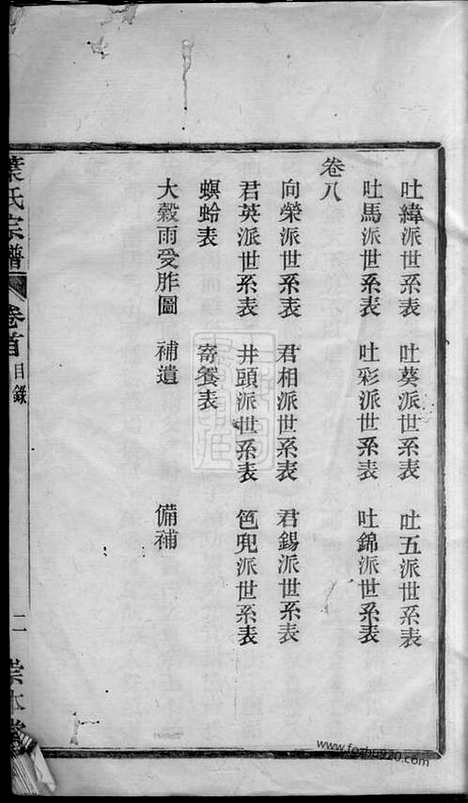 吐緯派世系表 吐葵派世系表 吐五派世系表
吐馬派世系表 吐彩派世系表 吐錦派世系表
卷八
向榮派世系表 君相派世系表 君錫派世系表
君英派世系表 井頭派世系表 笆兜派世系表
螟蛉表 寄養表
大穀雨受胙圖 補遺 備補
葉氏宗譜 卷首 目錄 二
www.fozhu920.com